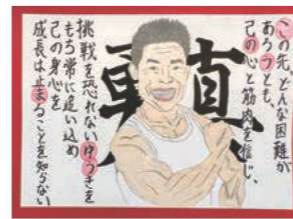 この先、どんな困難が
あろうとも、
己の心と筋肉を信じ、
真
挑戦を恐れないゆうきを
もち常に追い込め
己の身心を
成長は止まることを知らない